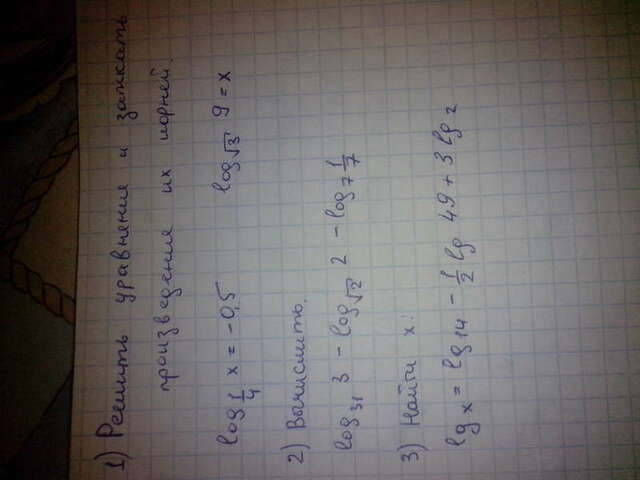 1) Решить уравнение и записать
произведение их корней.
log_{1/4} x = -0,5   log_{√3} 9 = x
2) Вычислить.
log_{31} 3 - log_{√2} 2 - log_7 1/7
3) Найти x:
lg x = lg 14 - 1/2 lg 49 + 3 lg 2